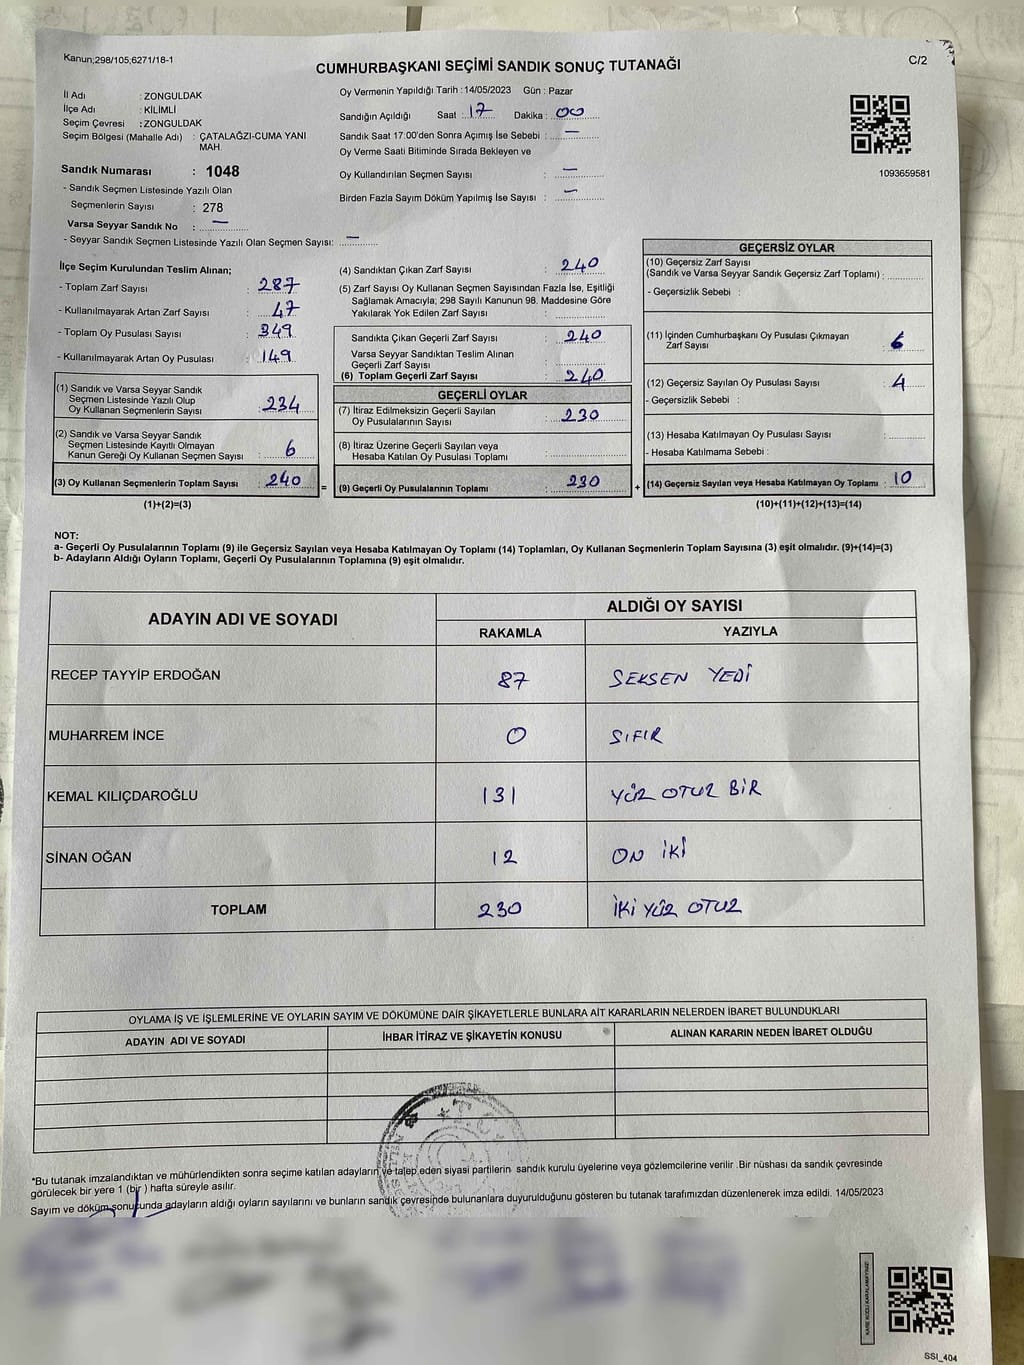 Kanun;298/105,6271/18-1
C/2
CUMHURBAŞKANI SEÇİMİ SANDIK SONUÇ TUTANAĞI
İl Adı : ZONGULDAK
İlçe Adı : KİLİMLİ
Seçim Çevresi : ZONGULDAK
Seçim Bölgesi (Mahalle Adı) : ÇATALAĞZI-CUMA YANI
MAH.
Sandık Numarası : 1048
- Sandık Seçmen Listesinde Yazılı Olan
Seçmenlerin Sayısı : 278
Varsa Seyyar Sandık No : —
- Seyyar Sandık Seçmen Listesinde Yazılı Olan Seçmen Sayısı: —
Oy Vermenin Yapıldığı Tarih : 14/05/2023 Gün : Pazar
Sandığın Açıldığı Saat : 17 Dakika : 00
Sandık Saat 17:00'den Sonra Açımış İse Sebebi : —
Oy Verme Saati Bitiminde Sırada Bekleyen ve
Oy Kullandırılan Seçmen Sayısı : —
Birden Fazla Sayım Döküm Yapılmış İse Sayısı : —
1093659581
İlçe Seçim Kurulundan Teslim Alınan;
- Toplam Zarf Sayısı : 287
- Kullanılmayarak Artan Zarf Sayısı : 47
- Toplam Oy Pusulası Sayısı : 349
- Kullanılmayarak Artan Oy Pusulası : 149
(1) Sandık ve Varsa Seyyar Sandık
Seçmen Listesinde Yazılı Olup
Oy Kullanan Seçmenlerin Sayısı : 234
(2) Sandık ve Varsa Seyyar Sandık
Seçmen Listesinde Kayıtlı Olmayan
Kanun Gereği Oy Kullanan Seçmen Sayısı : 6
(3) Oy Kullanan Seçmenlerin Toplam Sayısı : 240
(1)+(2)=(3)
(4) Sandıktan Çıkan Zarf Sayısı : 240
(5) Zarf Sayısı Oy Kullanan Seçmen Sayısından Fazla İse, Eşitliği
Sağlamak Amacıyla; 298 Sayılı Kanunun 98. Maddesine Göre
Yakılarak Yok Edilen Zarf Sayısı :
Sandıkta Çıkan Geçerli Zarf Sayısı : 240
Varsa Seyyar Sandıktan Teslim Alınan
Geçerli Zarf Sayısı :
(6) Toplam Geçerli Zarf Sayısı : 240
GEÇERLİ OYLAR
(7) İtiraz Edilmeksizin Geçerli Sayılan
Oy Pusulalarının Sayısı : 230
(8) İtiraz Üzerine Geçerli Sayılan veya
Hesaba Katılan Oy Pusulası Toplamı :
= (9) Geçerli Oy Pusulalarının Toplamı : 230
GEÇERSİZ OYLAR
(10) Geçersiz Zarf Sayısı
(Sandık ve Varsa Seyyar Sandık Geçersiz Zarf Toplamı) :
- Geçersizlik Sebebi :
(11) İçinden Cumhurbaşkanı Oy Pusulası Çıkmayan
Zarf Sayısı : 6
(12) Geçersiz Sayılan Oy Pusulası Sayısı : 4
- Geçersizlik Sebebi :
(13) Hesaba Katılmayan Oy Pusulası Sayısı :
- Hesaba Katılmama Sebebi :
+ (14) Geçersiz Sayılan veya Hesaba Katılmayan Oy Toplamı : 10
(10)+(11)+(12)+(13)=(14)
NOT:
a- Geçerli Oy Pusulalarının Toplamı (9) ile Geçersiz Sayılan veya Hesaba Katılmayan Oy Toplamı (14) Toplamları, Oy Kullanan Seçmenlerin Toplam Sayısına (3) eşit olmalıdır. (9)+(14)=(3)
b- Adayların Aldığı Oyların Toplamı, Geçerli Oy Pusulalarının Toplamına (9) eşit olmalıdır.
ADAYIN ADI VE SOYADI ALDIĞI OY SAYISI
RAKAMLA YAZIYLA
RECEP TAYYİP ERDOĞAN 87 SEKSEN YEDİ
MUHARREM İNCE 0 SIFIR
KEMAL KILIÇDAROĞLU 131 YÜZ OTUZ BİR
SİNAN OĞAN 12 ON İKİ
TOPLAM 230 İKİ YÜZ OTUZ
OYLAMA İŞ VE İŞLEMLERİNE VE OYLARIN SAYIM VE DÖKÜMÜNE DAİR ŞİKAYETLERLE BUNLARA AİT KARARLARIN NELERDEN İBARET BULUNDUKLARI
ADAYIN ADI VE SOYADI İHBAR İTİRAZ VE ŞİKAYETİN KONUSU ALINAN KARARIN NEDEN İBARET OLDUĞU
T.C.
*Bu tutanak imzalandıktan ve mühürlendikten sonra seçime katılan adayların ve talep eden siyasi partilerin sandık kurulu üyelerine veya gözlemcilerine verilir .Bir nüshası da sandık çevresinde
görülecek bir yere 1 (bir ) hafta süreyle asılır.
Sayım ve döküm sonucunda adayların aldığı oyların sayılarını ve bunların sandık çevresinde bulunanlara duyurulduğunu gösteren bu tutanak tarafımızdan düzenlenerek imza edildi. 14/05/2023
KARE KODU KARALAMAYINIZ!
SSI_404